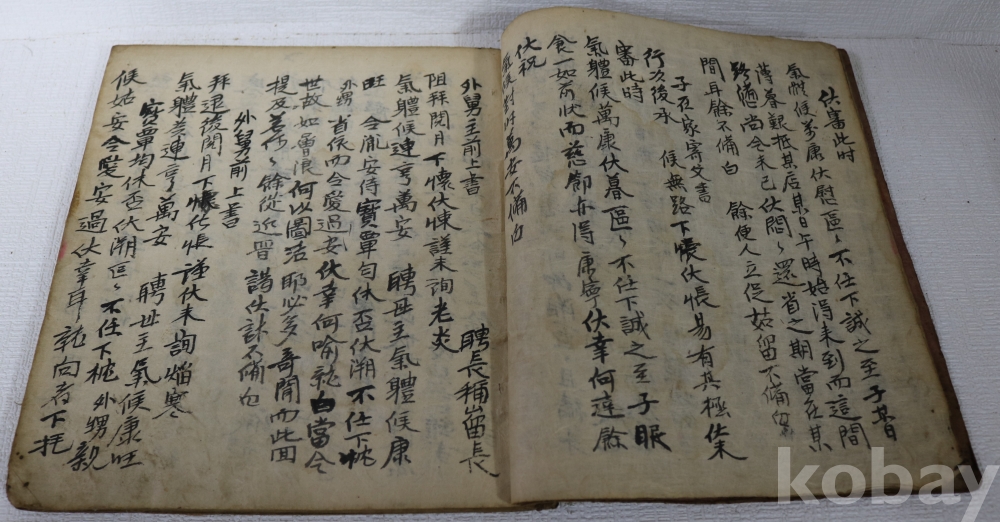 伏審此時
氣體候萬康伏慰區〻不任下誠之至子某日
薄暮艱抵其店某日午時始得來到而這間
尚今未已伏悶〻還省之期當在某
間耳餘不備白 餘使人立促姑留不備白
子在家寄父書
行次後承 候無路下懷伏悵易有其極伏未
審此時
氣體候萬康伏暮區〻不任下誠之至子眠
食一如前狀而慈節亦得康寧伏幸何達餘
伏祝
萬安不備白
外舅主前上書 聘長稱岳長
阻拜閱月下懷伏悚謹未詢老炎
氣體候連亨萬安 聘母主氣體候康
旺 令胤安侍寶覃勻休否伏溯不任下忱
外甥省依而令愛過安伏幸何喻就白當今
世故如曾浪何以圖活耶必多奇聞而此回
提及若何〻餘從近晋謁伏計不備白
外舅前上書
拜退後閱月下懷伏悵謹伏未詢焔寒
氣體益連亨萬安 聘母主氣候康旺
寶覃均休否伏溯區〻不任下忱外甥親
候姑安令愛安過伏幸耳就向者下托
kobay